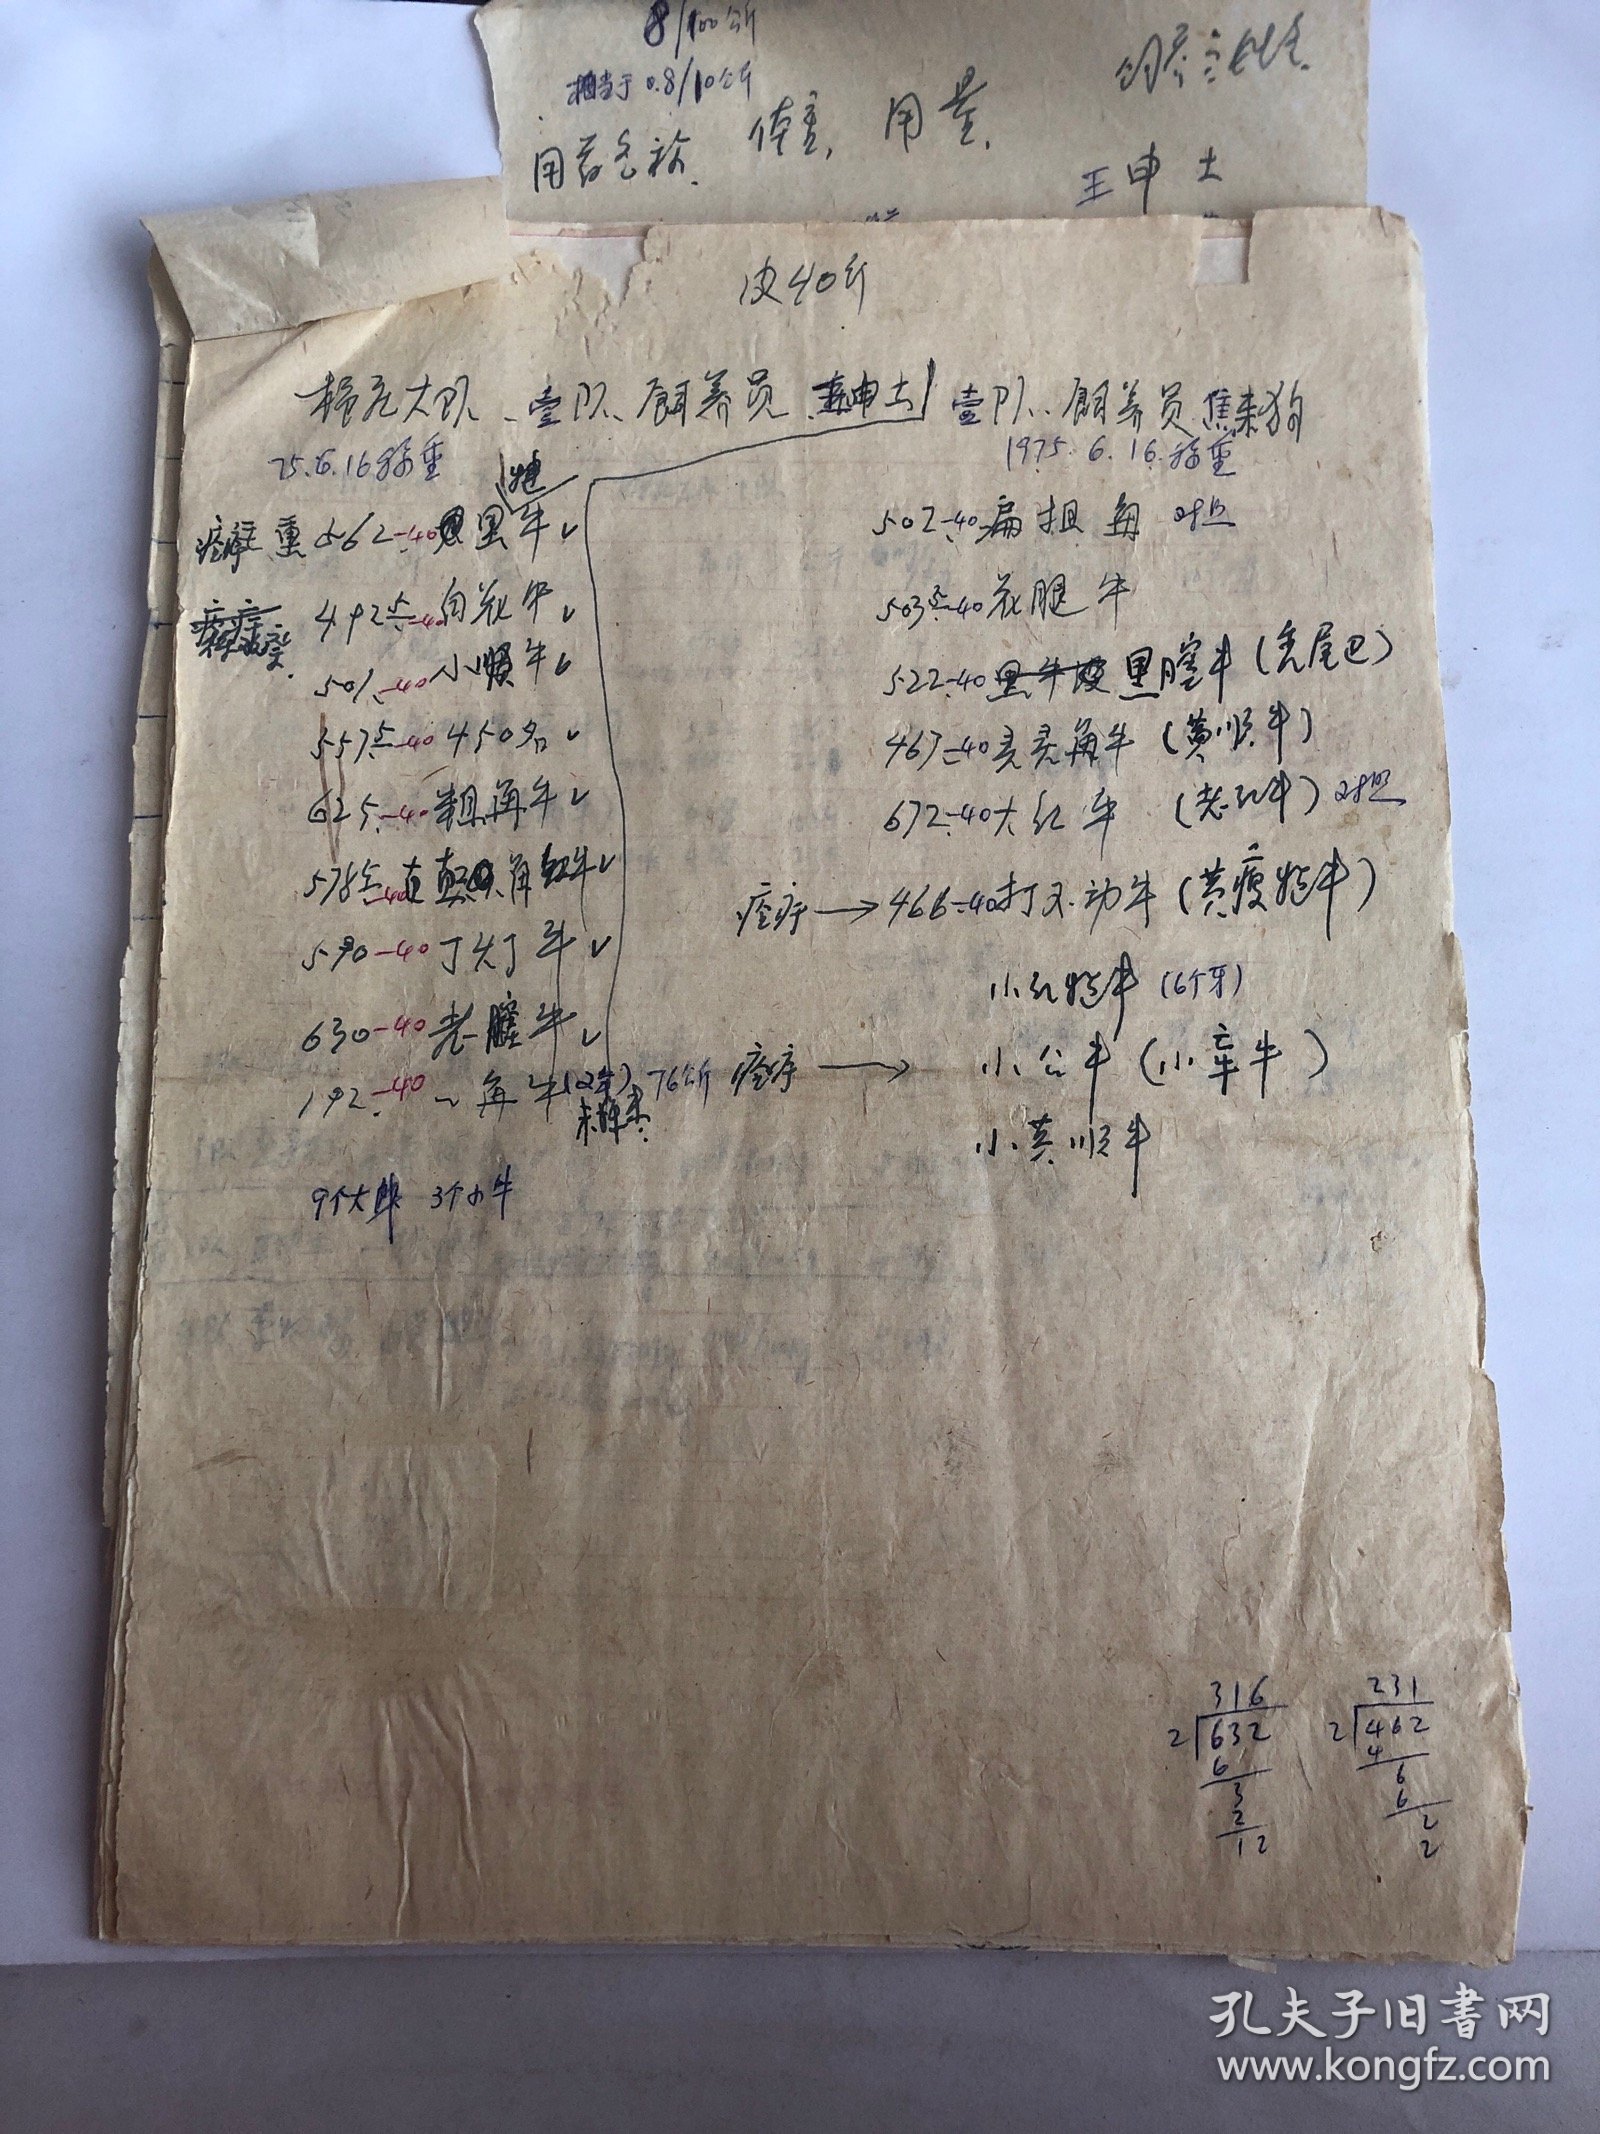 8/100公斤
相当于 0.8/10公斤
用药名称. 体重, 用量.
王申土
皮40斤
大队、壹队、飼养员
75.6.16称重
犍
562-40 黑牛√
492.5-40 白花牛√
501-40 小牛√
557.5-40 450名√
625-40 粗角牛√
578.5-40 直角牛√
590-40 丁头丁牛√
630-40 老牛√
192-40 ~角牛(2岁) 76公斤
9个大牛 3个小牛
壹队、飼养员焦来狗
1975.6.16.称重
502-40 扁担角 对照
503.5-40 花腿牛
522-40 黑牛 (秃尾巴)
467-40 角牛 (黄顺牛)
672-40 大红牛 (老红牛) 对照
→466-40 打不动牛 (黄瘦牛)
小红牛 (6个牙)
→ 小公牛 (小牵牛)
小黄顺牛
316
2 632
6
3
2
12
231
2 462
4
6
6
2
2
孔夫子旧书网
www.kongfz.com